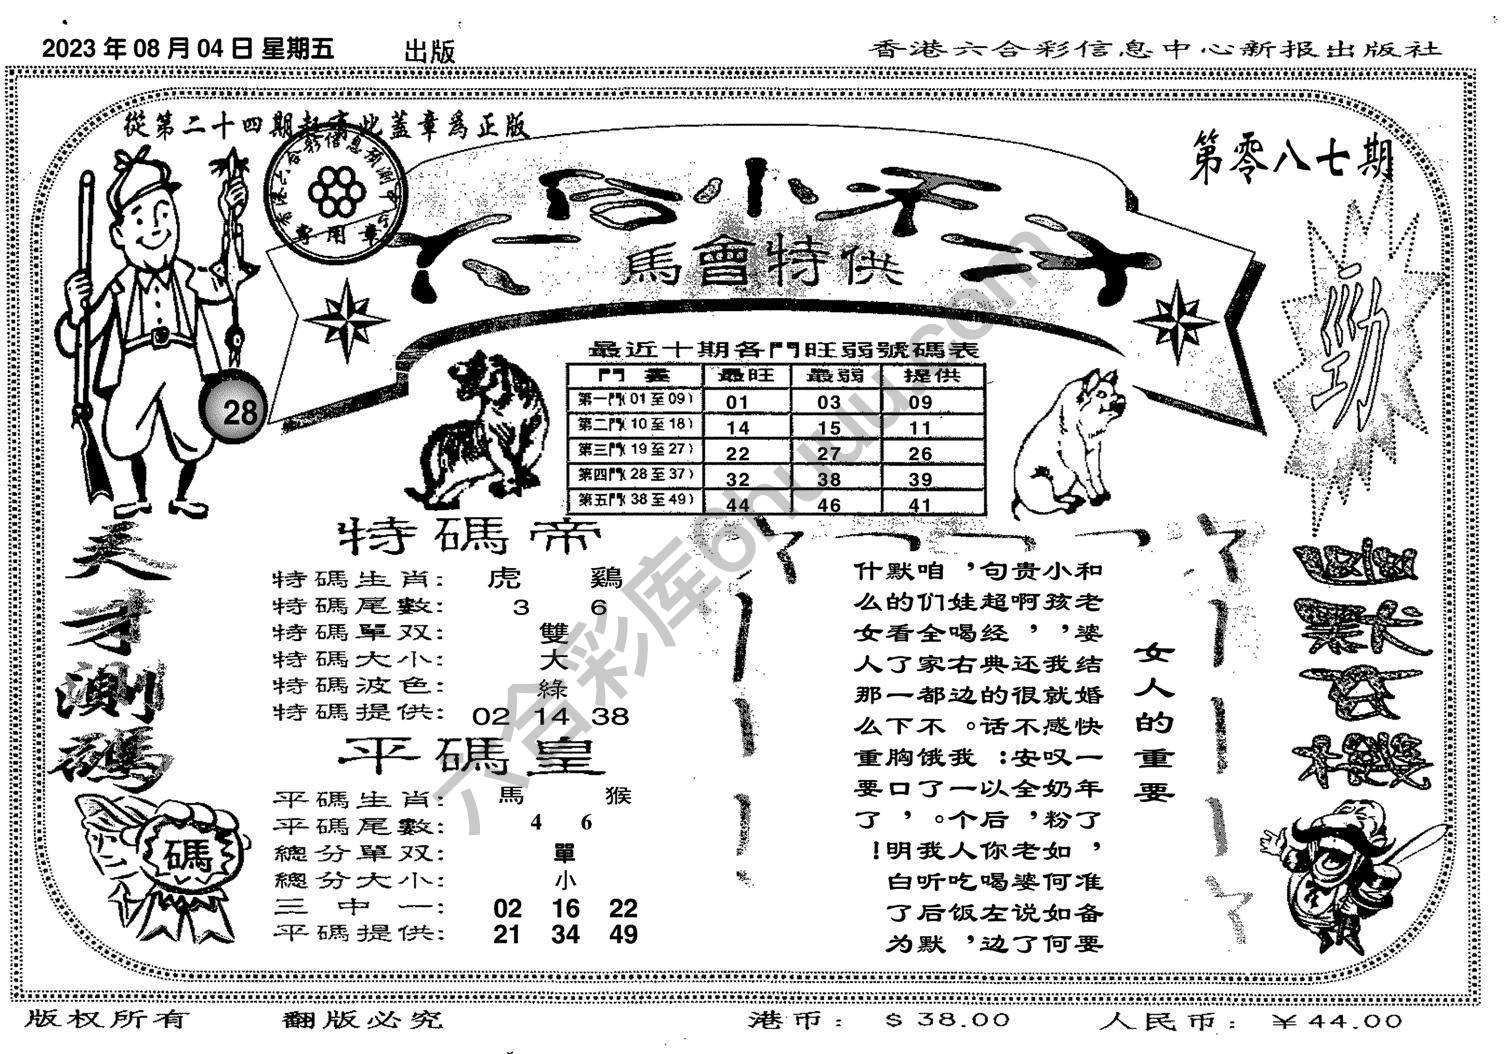 2023年08月04日星期五 出版
香港六合彩信息中心新报出版社
從第二十四期起有此蓋章爲正版
香港六合彩信息预测中心
專用章
第零八七期
六合小天才
馬會特供
劲
28
最近十期各門旺弱號碼表
門叢 最旺 最弱 提供
第一門(01至09) 01 03 09
第二門(10至18) 14 15 11
第三門(19至27) 22 27 26
第四門(28至37) 32 38 39
第五門(38至49) 44 46 41
天才測碼
碼
特碼帝
特碼生肖: 虎 鷄
特碼尾數: 3 6
特碼單双: 雙
特碼大小: 大
特碼波色: 綠
特碼提供: 02 14 38
平碼皇
平碼生肖: 馬 猴
平碼尾數: 4 6
總分單双: 單
總分大小: 小
三中一: 02 16 22
平碼提供: 21 34 49
女人的重要
和老婆结婚快一年了，准备要
小孩，我就感叹奶粉如何如何
贵啊，还很不安全，老婆说了
句超经典的话：以后你喝左边
，娃喝右边。我一个人吃饭，
咱们全家都不饿了。我听后默
默的看了一下胸口，明白了为
什么女人那么重要了！
幽默玄機
六合彩库6huuu.com
版权所有 翻版必究 港币: $38.00 人民币: ¥44.00